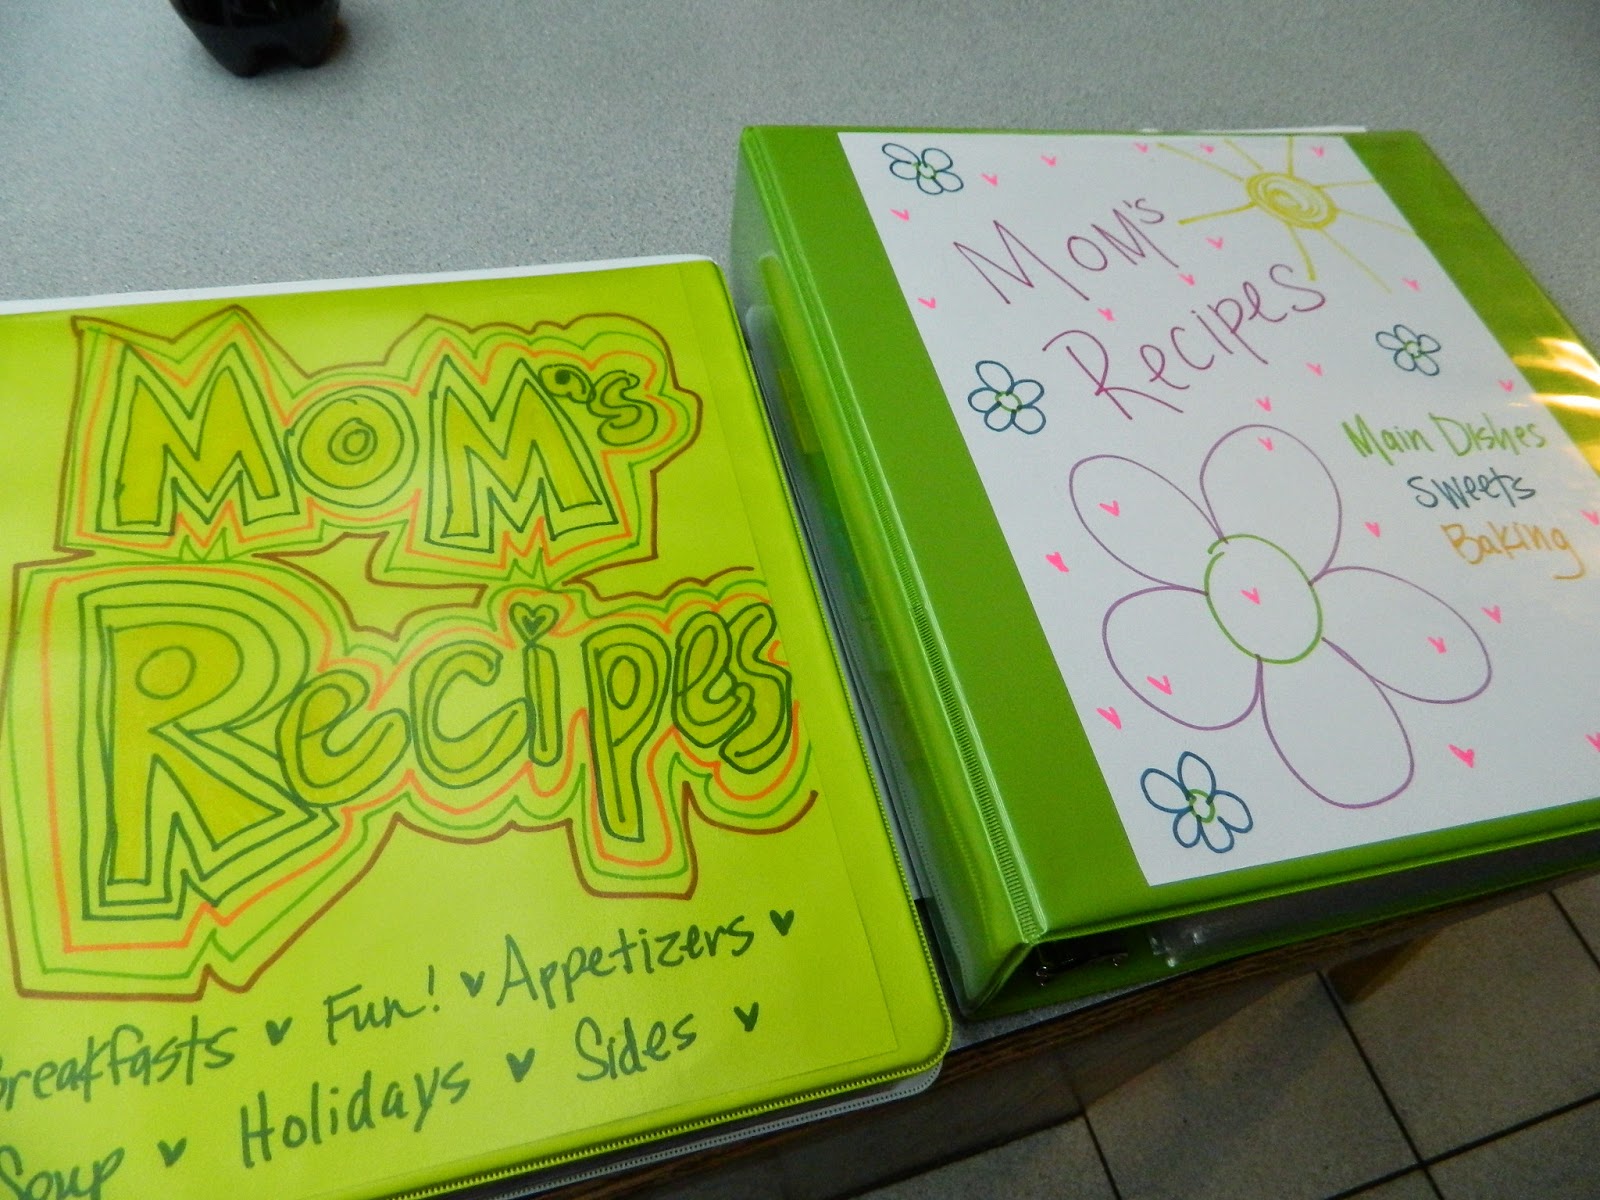 Mom's
Recipes
Breakfasts Fun! Appetizers
Soup Holidays Sides
Mom's
Recipes
Main Dishes
Sweets
Baking